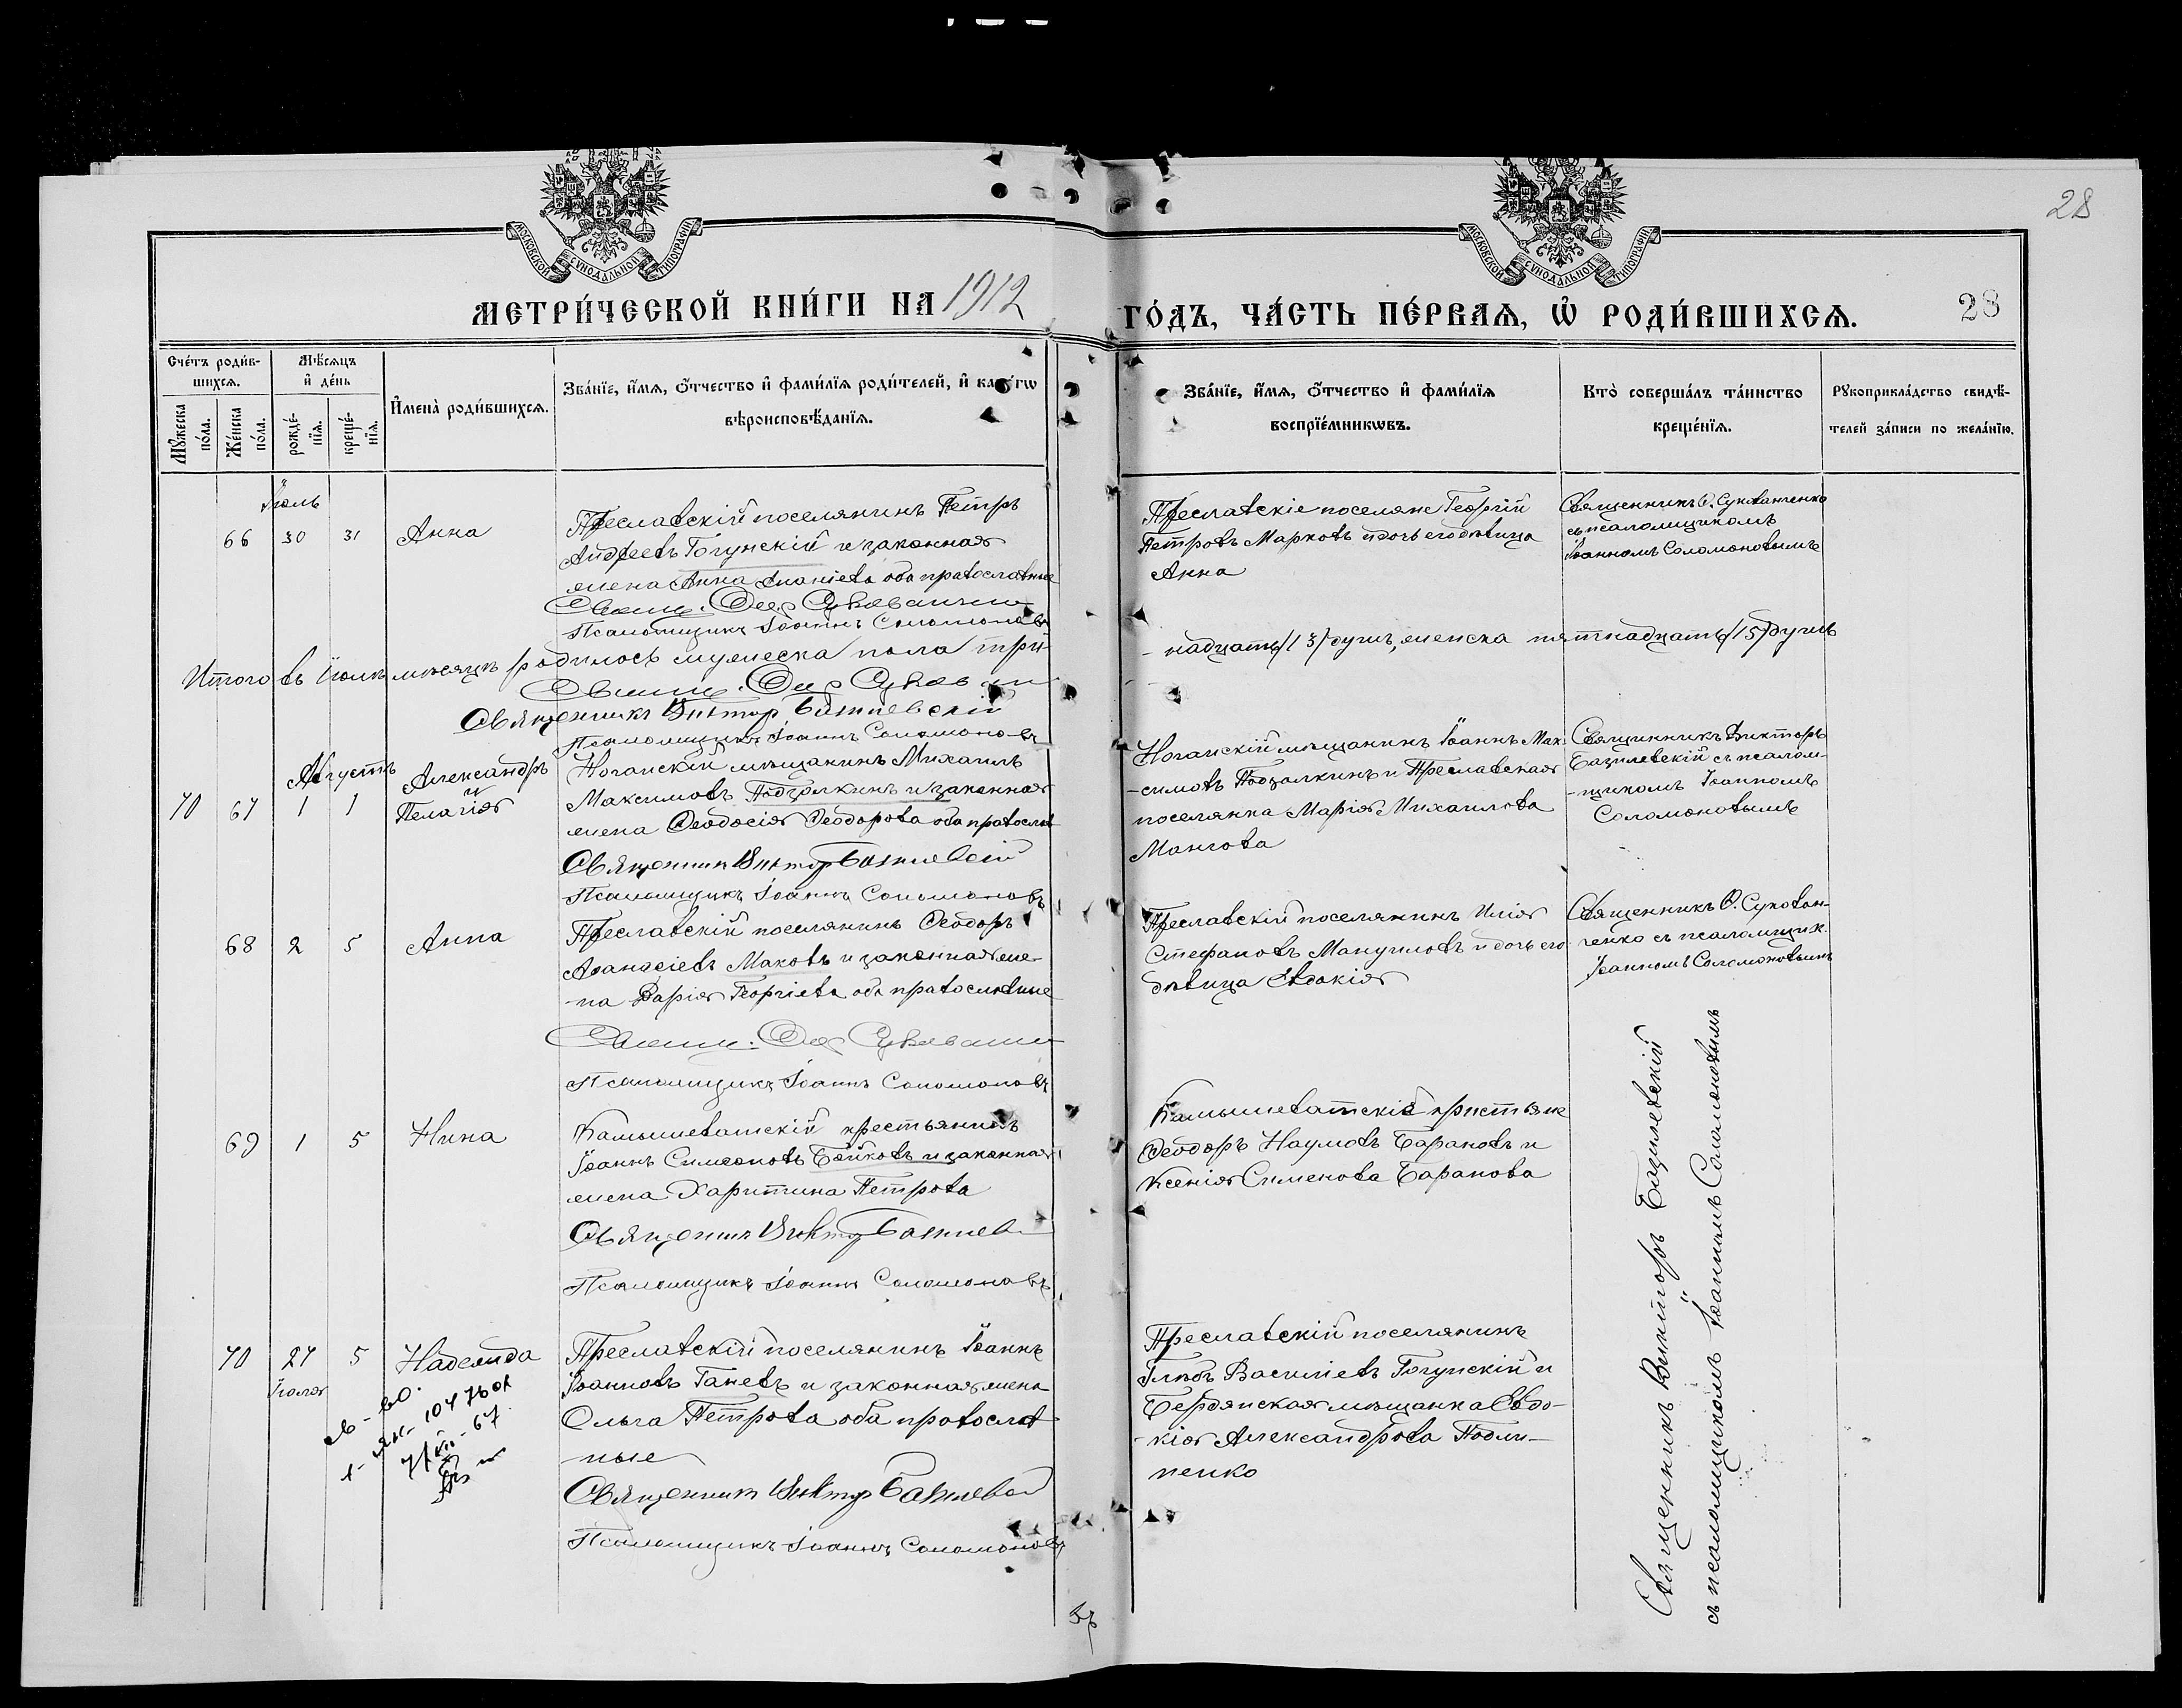 28
МОСКОВСКОЙ СѴНОДАЛЬНОЙ ТИПОГРАФІИ
МОСКОВСКОЙ СѴНОДАЛЬНОЙ ТИПОГРАФІИ
МЕТРИ́ЧЕСКОЙ КНИ́ГИ НА 1912
ГО́ДЪ, ЧА́СТЬ ПЕ́РВАѦ, Ѡ҆ РОДИ́ВШИХСѦ.
28
Сче́тъ роди́в-
шихсѧ.
Мѣ́сѧцъ
и҆ де́нь
Мꙋ́жеска
по́ла.
Же́нска
по́ла.
рожде́-
нїѧ.
креще́-
нїѧ.
И҆мена̀ роди́вшихсѧ.
Зва́нїе, и҆́мѧ, ѻ҆́тчество и҆ фами́лїѧ роди́телей, и҆
вѣроисповѣ́данїѧ.
Зва́нїе, и҆́мѧ, ѻ҆́тчество и҆ фами́лїѧ
воспрїе́мникѡвъ.
Кто̀ соверша́лъ та́инство
креще́нїѧ.
Рꙋкоприкла́дство свидѣ́-
телей за́писи по жела́нїю.
Іюль
66 30 31 Анна
Преславскій поселянинъ Петръ
Андреевъ Гогунскій и законная
жена Анна Ананіева оба православные
Псаломщикъ Іоаннъ Соломоновъ
Преславскіе поселяне Георгій
Петровъ Марковъ и дочь его дѣвица
Анна
Священникъ Ѳ. Сукованченко
съ псаломщикомъ
Іоанномъ Соломоновымъ
Итого въ Іюлѣ мѣсяцѣ родилось мужеска пола три-
- надцать /13/ душъ, женска пятнадцать /15/ душъ
Священникъ Викторъ Базилевскій
Псаломщикъ Іоаннъ Соломоновъ
Августъ
70 67 1 1 Александръ
и
Пелагія
Ногайскій мѣщанинъ Михаилъ
Максимовъ Подзолкинъ и законная
жена Ѳеодосія Ѳеодорова оба православ
Священникъ Виктор Базилевскій
Псаломщикъ Іоаннъ Соломоновъ
Ногайскій мѣщанинъ Іоаннъ Мак-
-симовъ Подзолкинъ и Преславская
поселянка Марія Михаилова
Мангова
Священникъ Викторъ
Базилевскій съ псалом-
-щикомъ Іоанномъ
Соломоновымъ
68 2 5 Анна
Преславскій поселянинъ Ѳеодоръ
Аѳанасіевъ Маковъ и законная же-
-на Дарія Георгіева оба православные
Псаломщикъ Іоаннъ Соломоновъ
Преславскій поселянинъ Илія
Стефановъ Мануиловъ и дочь его
дѣвица Евдокія
Священникъ Ѳ. Сукован-
ченко съ псаломщик.
Іоанномъ Соломоновымъ
69 1 5 Нина
Камышеватскій крестьянинъ
Іоаннъ Симеоновъ Бойковъ и законная
жена Харитина Петрова
Псаломщикъ Іоаннъ Соломоновъ
Камышеватскіе крестьяне
Ѳеодоръ Наумовъ Барановъ и
Ксенія Сименова Баранова
70 27 5 Надежда
Іюля
Преславскій поселянинъ Іоаннъ
Іоанновъ Ганевъ и законная жена
Ольга Петрова оба православ
-ные
Псаломщикъ Іоаннъ Соломоновъ
Преславскій поселянинъ
Глѣбъ Василіевъ Гогунскій и
Бердянская мѣщанка Евдо-
-кія Александрова Подли-
пенко
Священникъ Викторъ Базилевскій
съ псаломщикомъ Іоанномъ Соломоновымъ